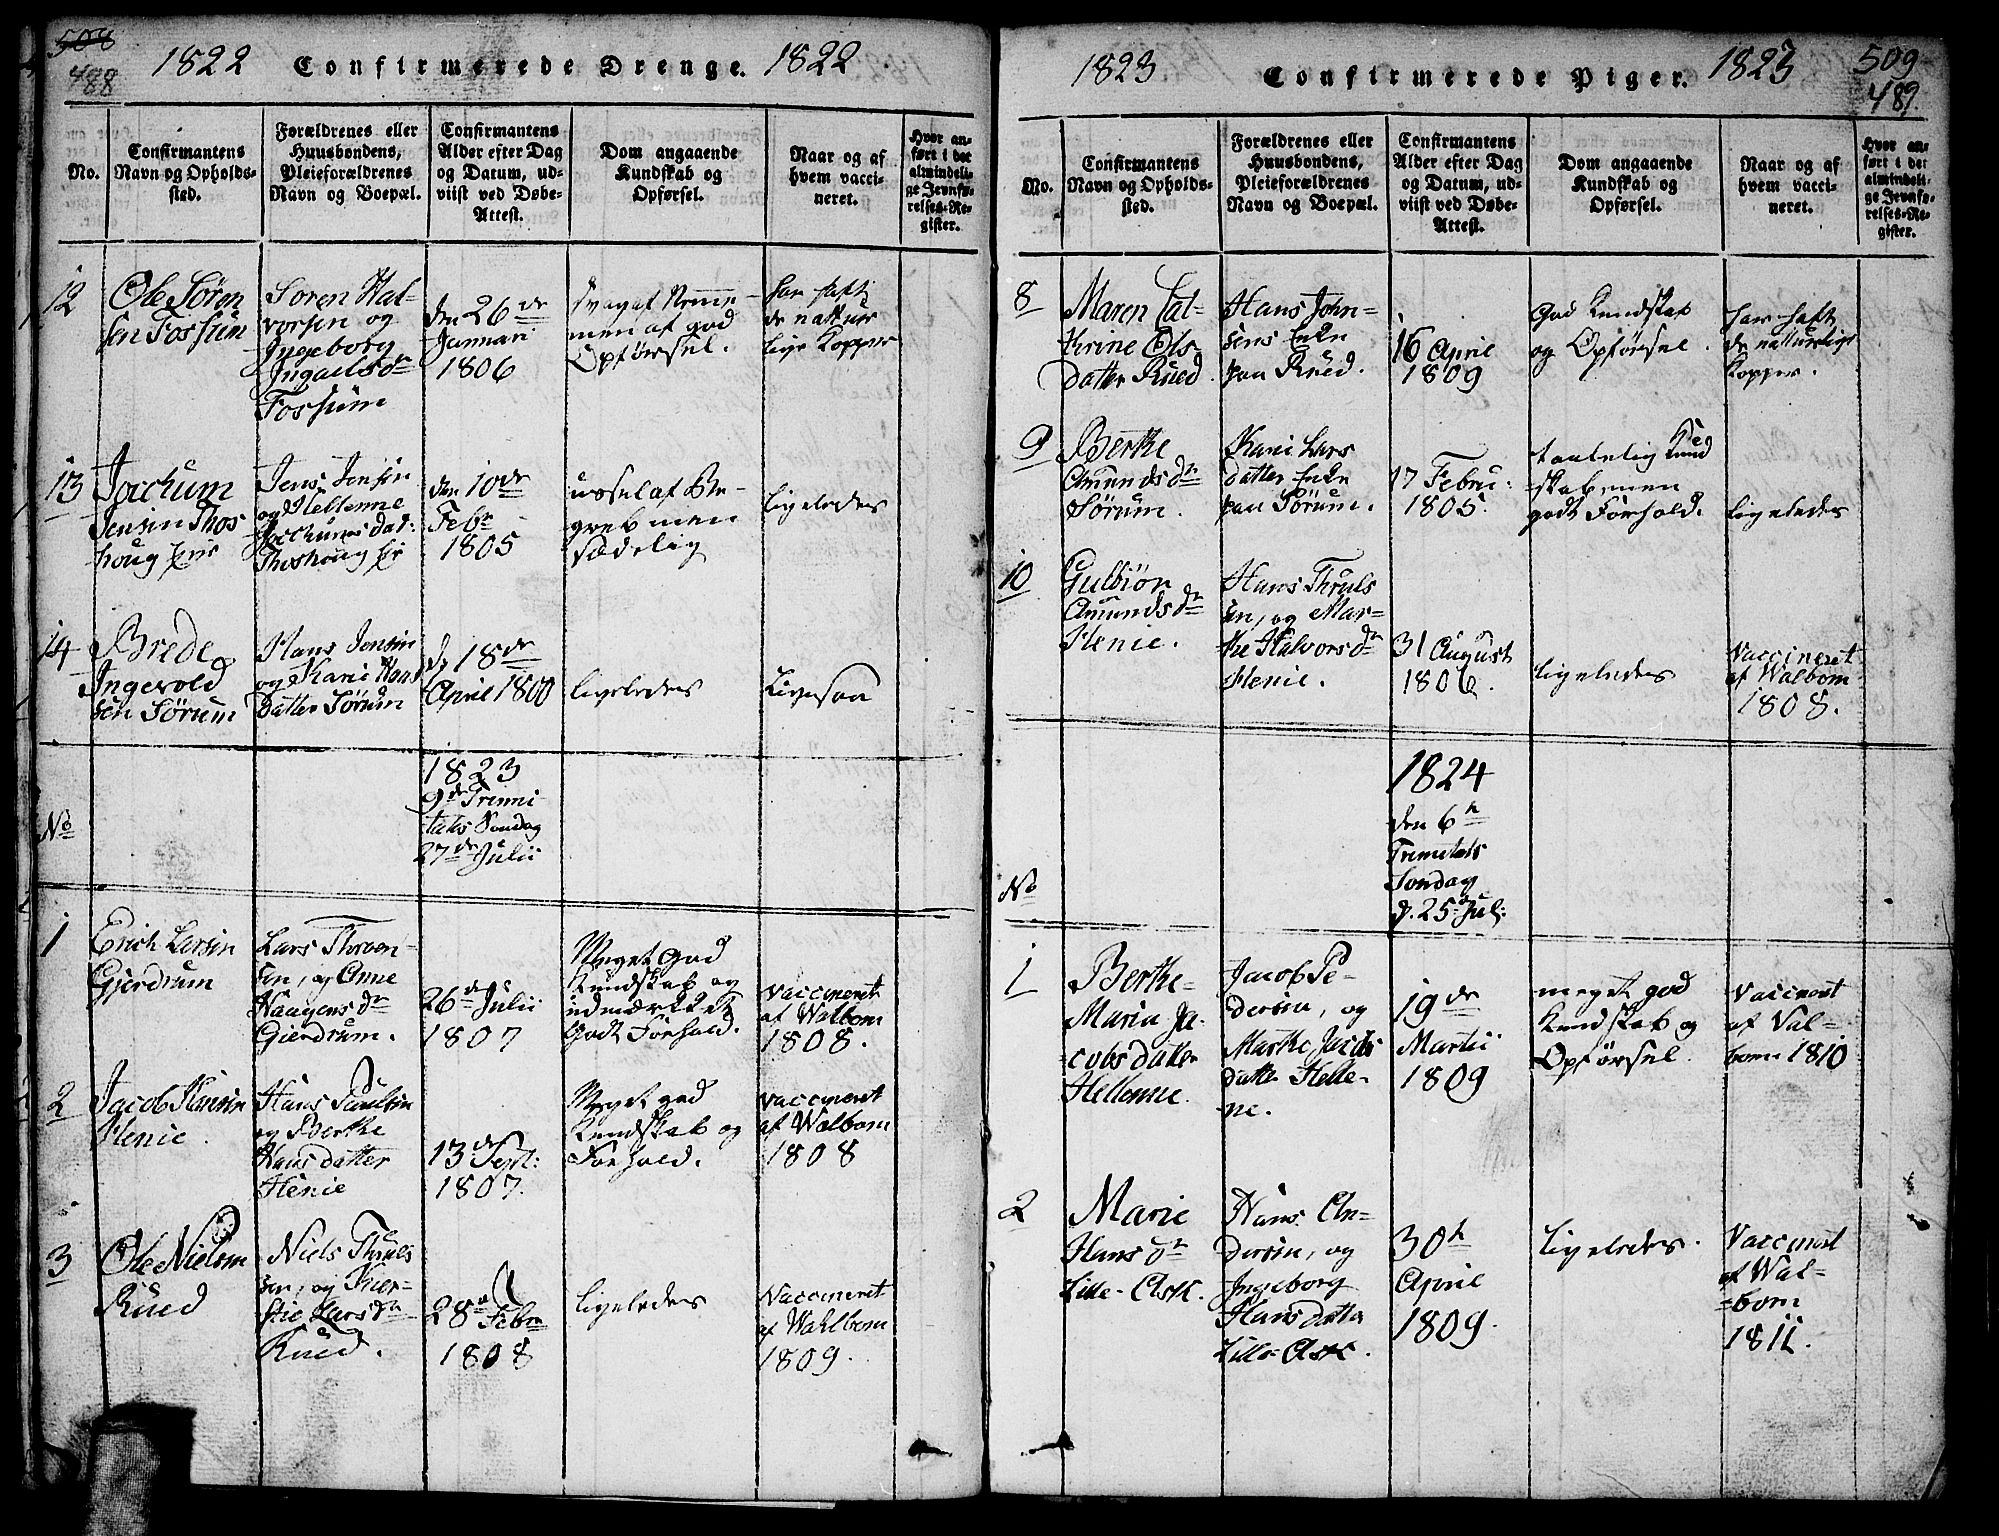 508
488
1822 Confirmerede Drenge. 1822.
No.
Confirmantens
Navn og Opholds-
sted.
Forældrenes eller
Huusbondens,
Pleieforældrenes
Navn og Boepæl.
Confirmantens
Alder efter Dag
og Datum, ud-
viist ved Døbe-
Attest.
Dom angaaende
Kundskab og
Opførsel.
Naar og af
hvem vacci-
neret.
Hvor an-
ført i det
almindeli-
ge Jevnfø-
relses-Re-
gister.
12
Ole Søren
sen Fossum
Soren Hal-
vorsen og
Ingeborg
Fossum
den 26de
Januari
1806
svag af Nemme
men af god
Opførsel.
har haft
de nattur
lige Kopper
13
Jochum
Jensen Thos
houg Eie
Jens Jensen
og Hellenne
Jochums dat:
Thoshoug Eie
den 10de
Febr
1805
ussel af Be-
greb men
sædelig
ligeledes
14
Brede
Ingevold
sen Sørum
Hans Jensen
og Kari Hans
Datter Sørum
d. 18de
April 1800
ligeledes
Ligesaa
No
1823
9de Trinni
tatis Søndag
27de Julii
1
Erich Larsen
Gjerdrum
Lars Throen-
sen, og Anne
Haagens dr
Gierdrum.
26d Julii
1807
Meget God
Kundskab og
udmærkket
Godt Forhold.
vaccineret
af Walbom
1808.
2
Jacob Hansen
Henie.
Hans Paulsen
og Berthe
Hans datter
Henie
13de Sept:
1807.
Meget god
Kundskab og
Forhold.
vaccineret
af Walbom
1808
3
Ole Nielsen
Rued
Niels Thruls
sen, og Kier-
stie Lars dr
Rued.
28d Febr
1808
ligeledes
Vaccineret
af Wahlbom
1809.
1823 Confirmerede Piger. 1823 509
489.
No.
Confirmantens
Navn og Opholds-
sted.
Forældrenes eller
Huusbondens,
Pleieforældrenes
Navn og Boepæl.
Confirmantens
Alder efter Dag
og Datum, ud-
viist ved Døbe-
Attest.
Dom angaaende
Kundskab og
Opførsel.
Naar og af
hvem vacci-
neret.
Hvor an-
ført i det
almindeli-
ge Jevnfø-
relses-Re-
gister.
8
Maren Cat-
hrine Ols-
datter Rued.
Hans John-
sens Enke
paa Rued.
16 April
1809
God Kundskab
og Opførsel.
har haft
de natturlige
Kopper.
9
Berthe
Amunds dr
Sørum.
Kari Lars
datter Enke
paa Sørum.
17 Febru:
1805.
taalelig Kund
-skab, men
godt Forhold.
ligeledes
10
Gulbiør
Amunds dr
Henie.
Hans Thruls
sen, og Mar-
the Halvors dr
Henie.
31 August
1806.
ligeledes
Vaccineret
af Walbom
1808.
No
1824
den 6te
Trinitatis
Søndag
d. 25 Jul:
1
Berthe-
Maria Ja-
cobs datter
Hellenne.
Jacob Pe-
dersen, og
Marthe Jacobs
datter Helle-
ne.
19de
Martii
1809
meget god
Kundskab og
Opførsel.
Vaccinert
af Val-
bom 1810
2
Marie
Hans dr
Lille-Ask.
Hans An-
dersen, og
Ingeborg
Hans datter
Lille-Ask.
30te
April
1809.
Ligeledes.
Vaccinert
af Wal-
-bom
1811.